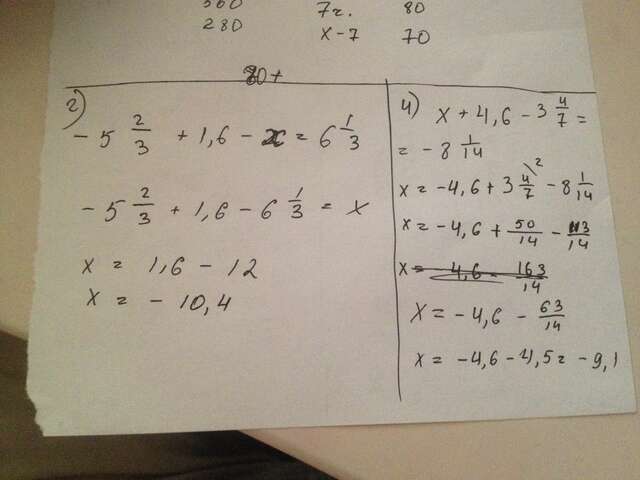 80
280 x-7 70
2)
- 5 2/3 + 1,6 - x = 6 1/3
- 5 2/3 + 1,6 - 6 1/3 = x
x = 1,6 - 12
x = - 10,4
4) x + 4,6 - 3 4/7 =
= - 8 1/14
x = -4,6 + 3 4/7 \2 - 8 1/14
x = -4,6 + 50/14 - 113/14
x = -4,6 - 163/14
x = -4,6 - 63/14
x = -4,6 - 4,5 = -9,1